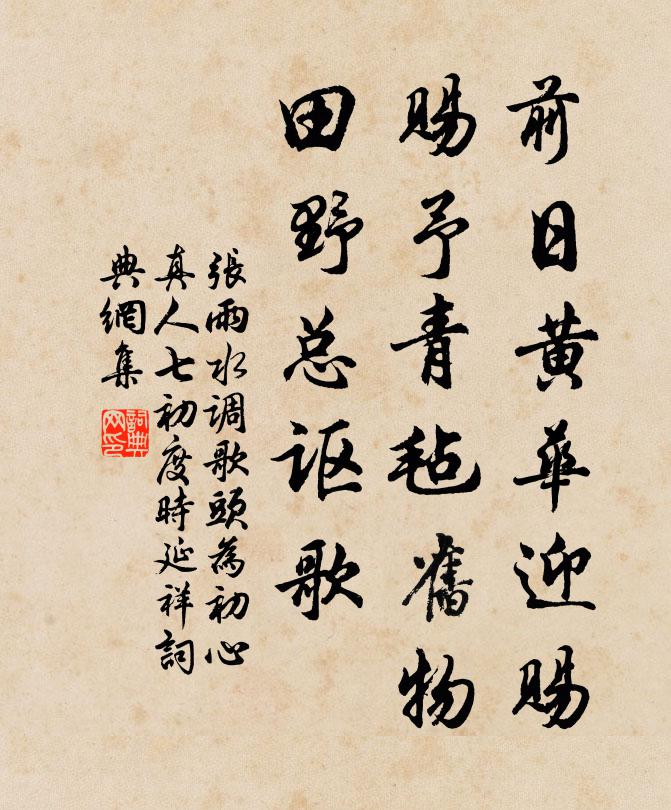 前日黄华迎赐
赐予青毡舊物
田野总讴歌
張雨水调歌頭為初心
真人七初度時延祥詞
典網集
詞典网印